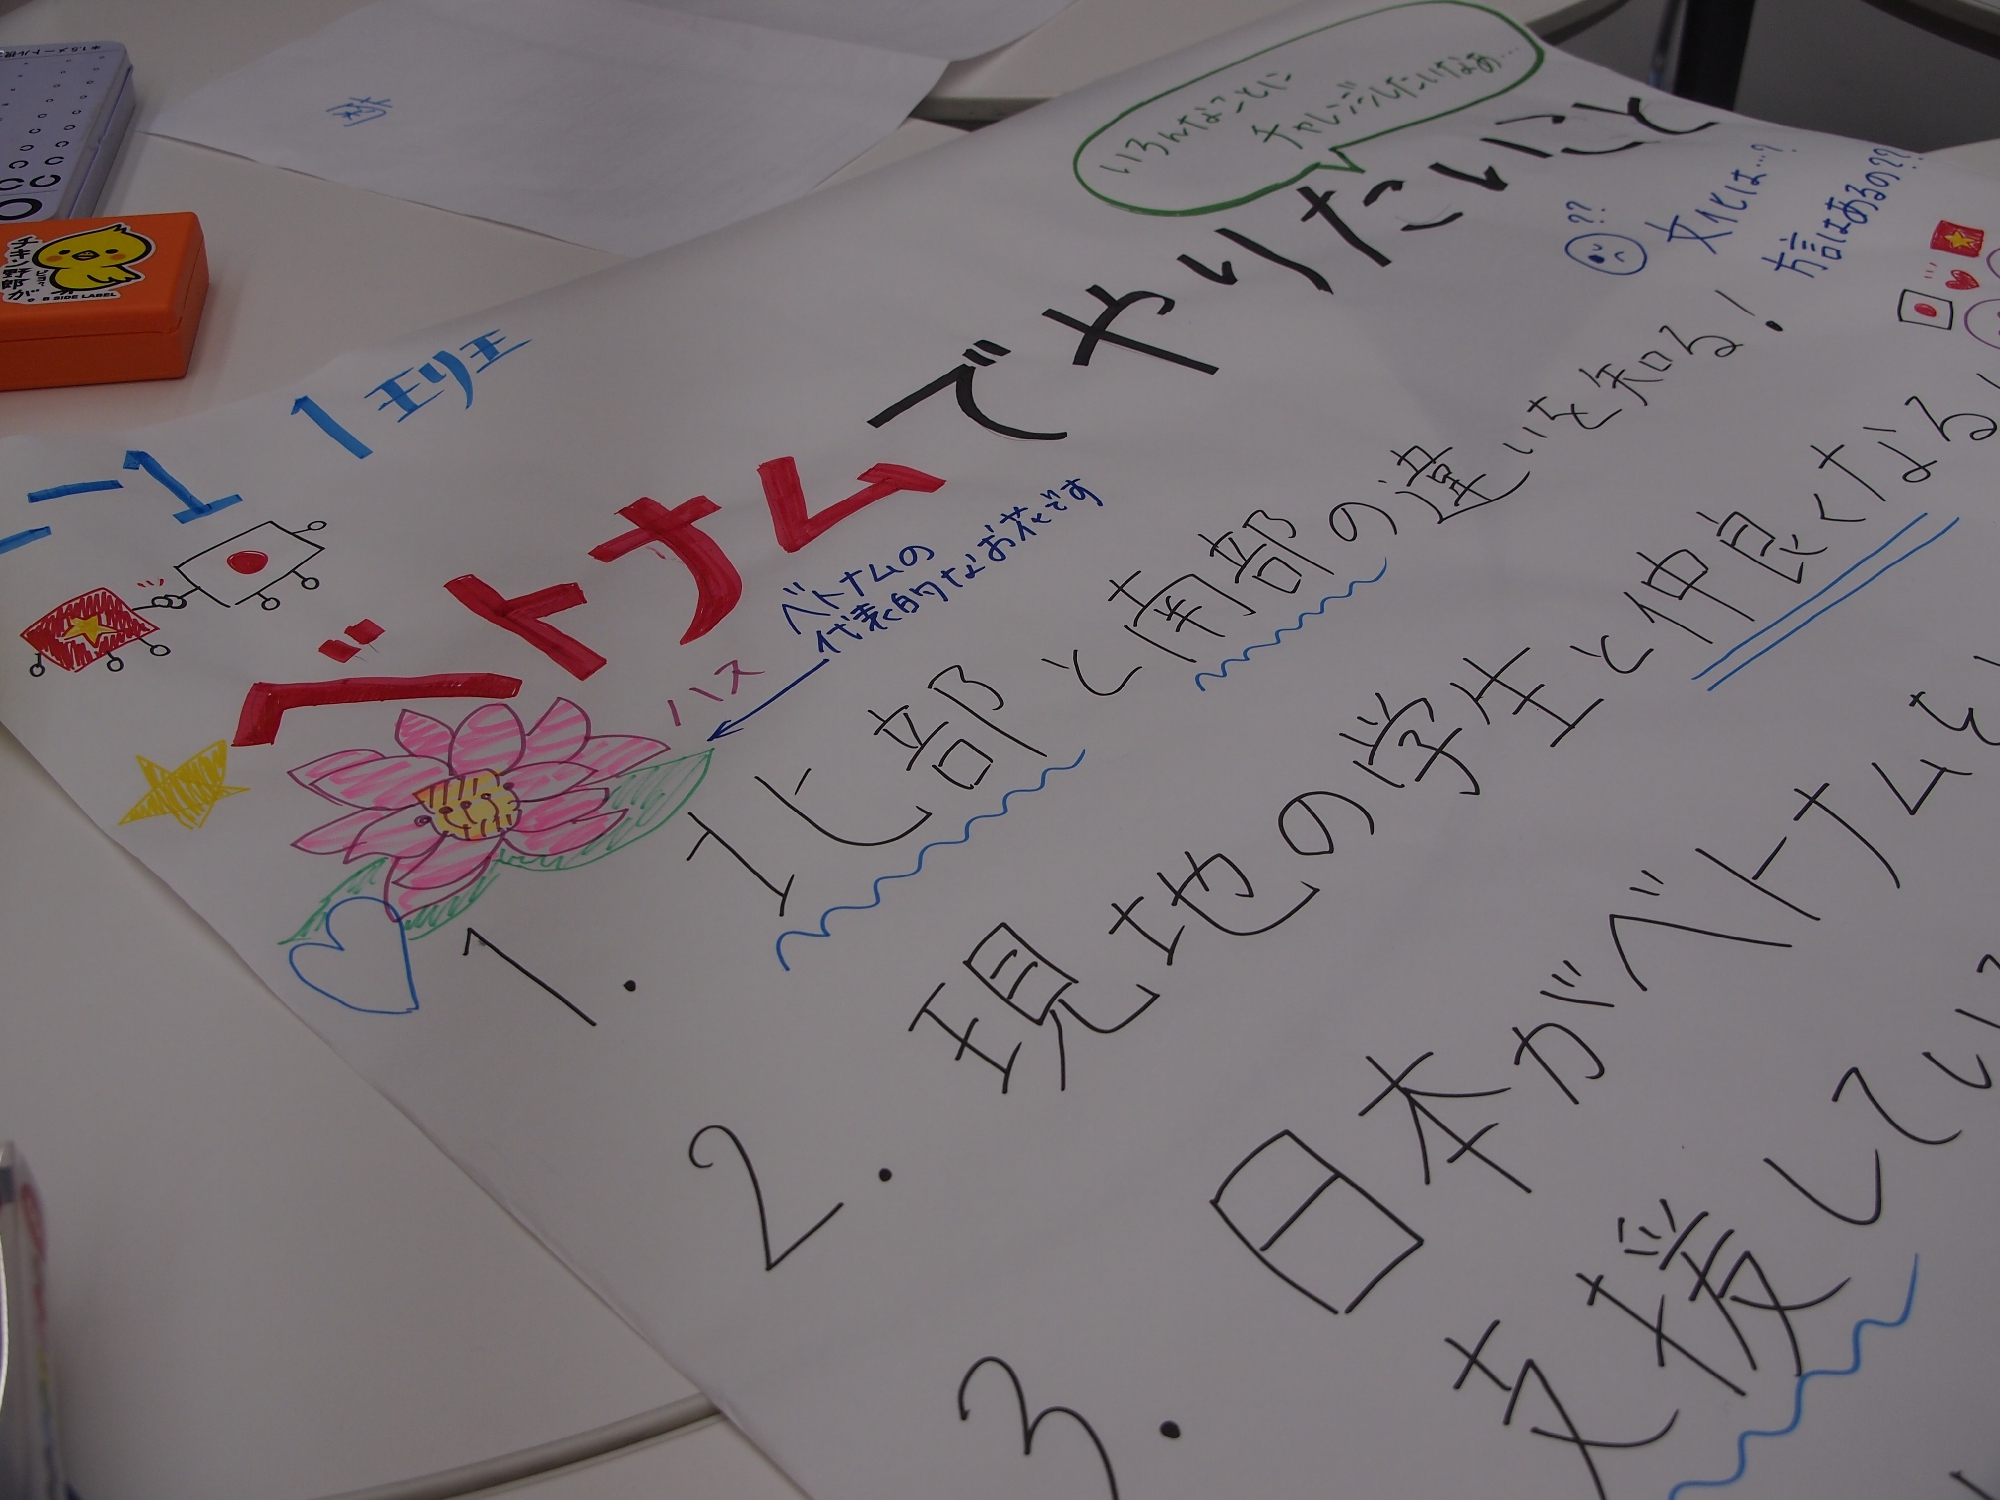 いろんなことに
チャレンジしたいなあ…
ベトナムでやりたいこと
??
文化は…?
方言はあるの???
ベトナムの
代表的なお花です
ハス
1. 北部と南部の違いを知る!
2. 現地の学生と仲良くなる
3. 日本がベトナムを
支援してい
チキン野郎
が。
B SIDE LABEL